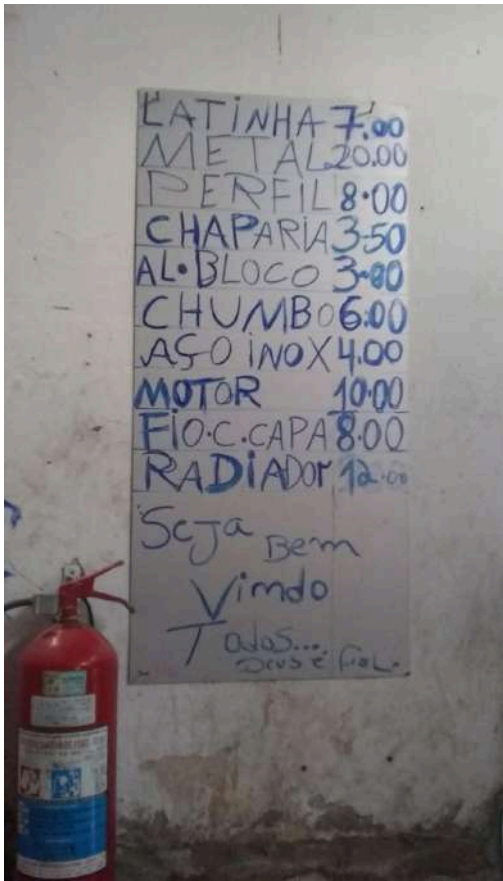 LATINHA 7.00
METAL 20.00
PERFIL 8.00
CHAPARIA 3.50
AL. BLOCO 3.80
CHUMBO 6.00
AÇO iNOX 4.00
MOTOR 10.00
FIO.C.CAPA 8.00
RADiADOr 12.00
Seja Bem
Vimdo
Todos...
Deus é fiel.